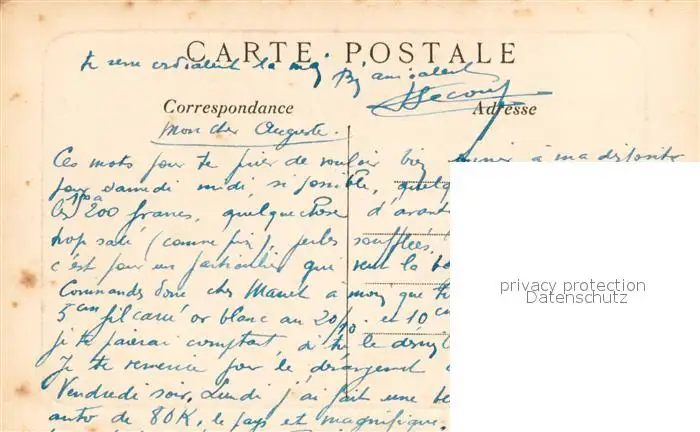 CARTE POSTALE
te serre cordialement la main
Bien amicalement
Correspondance
Adresse
Mon cher Auguste.
Ces mots pour te prier de vouloir bien à ma disposit
pour samedi midi si possible, quelq
les 200 francs, quelque chose d'avant
trop salé (comme prix), perles soufflées.
c'est pour un particulier qui veut la
Commandes donc chez Manet à moy que
5 cm fil carré or blanc au 20/10 et 10 cm
je te paierai comptant, di tu le
Je te remercie pour le dérangement
Vendredi soir. Lundi j'ai fait une be
auto de 80K, le pays est magnifique.
privacy protection
Datenschutz